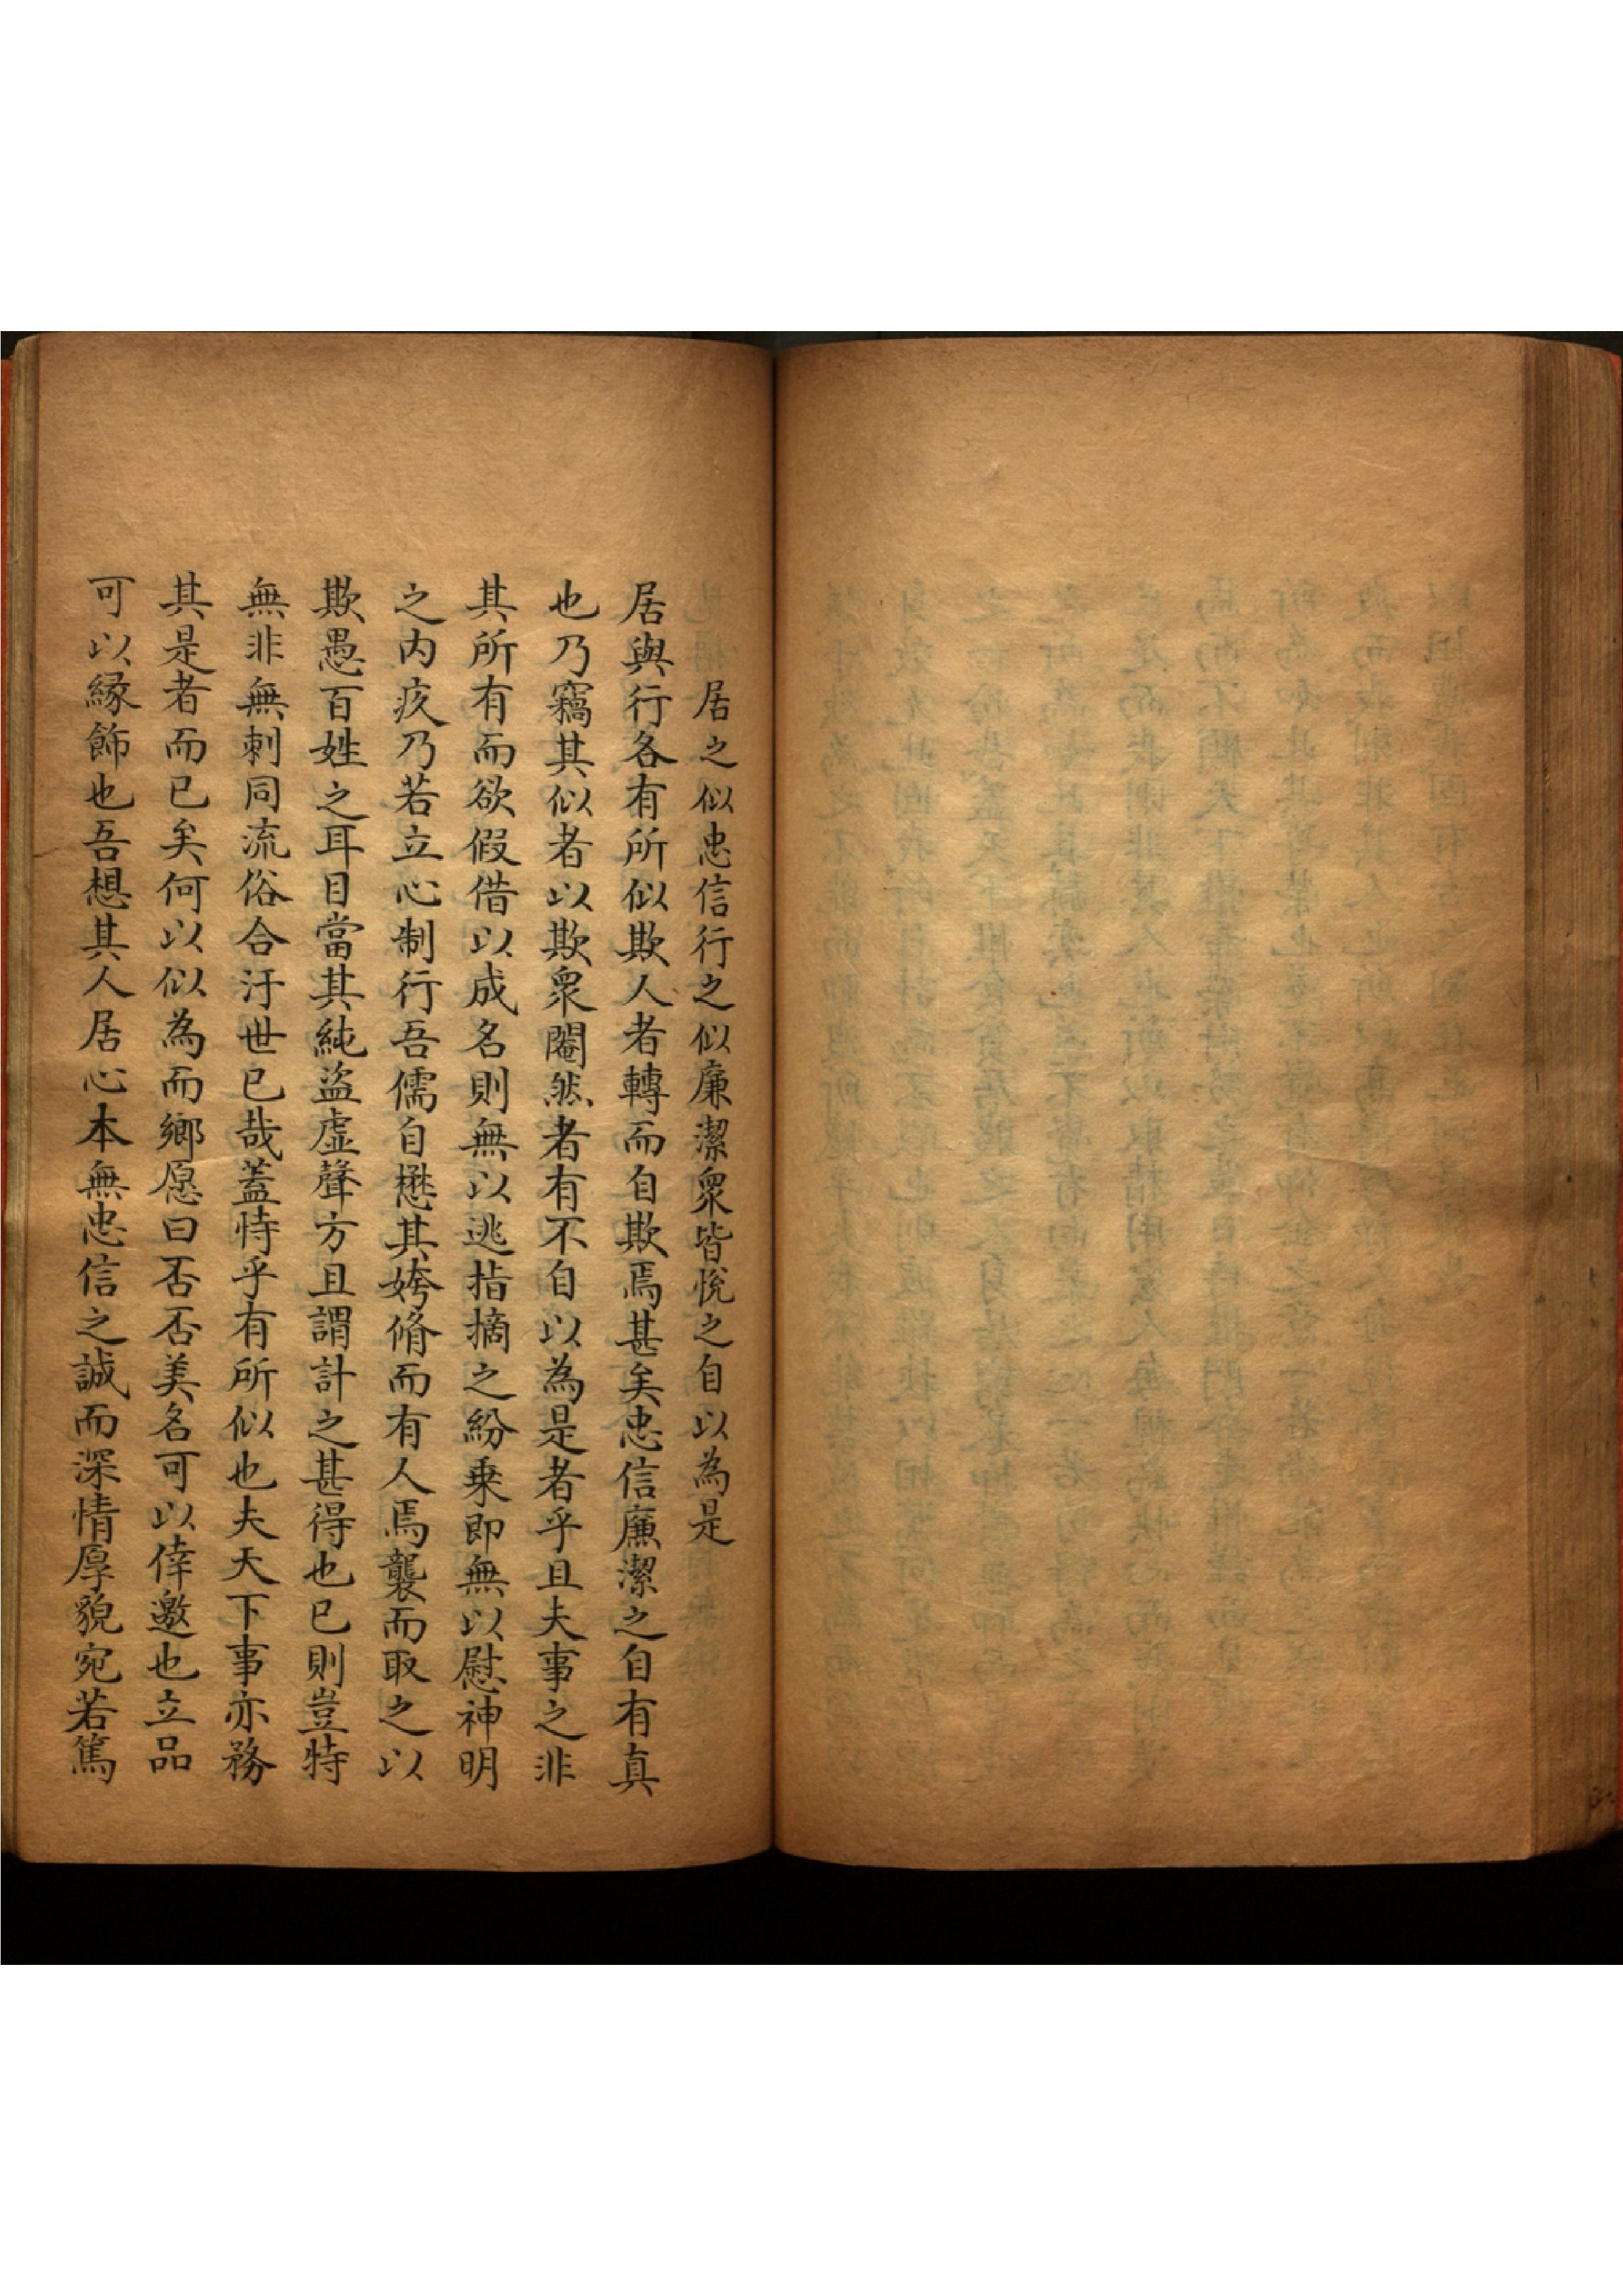 居之似忠信行之似廉潔衆皆悅之自以為是
居與行各有所似欺人者轉而自欺焉甚矣忠信廉潔之自有真
也乃竊其似者以欺衆閹然者有不自以為是者乎且夫事之非
其所有而欲假借以成名則無以逃指摘之紛乗即無以慰神明
之内疚乃若立心制行吾儒自懋其姱脩而有人焉襲而取之以
欺愚百姓之耳目當其純盜虛聲方且謂計之甚得也已則豈特
無非無刺同流俗合汙世已哉蓋恃乎有所似也夫天下事亦務
其是者而已矣何以似為而鄉愿曰否否美名可以倖邀也立品
可以緣飾也吾想其人居心本無忠信之誠而深情厚貌宛若篤